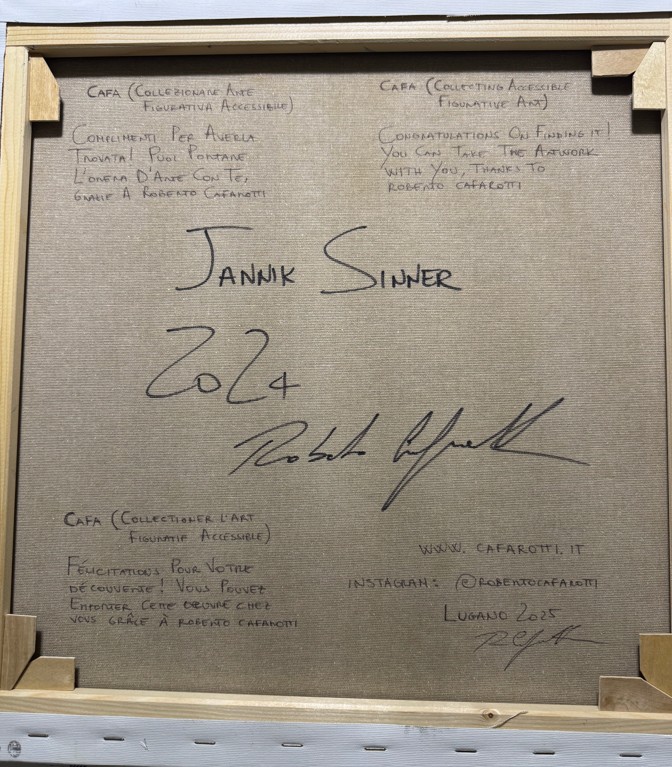 CAFA (COLLEZIONARE ARTE
FIGURATIVA ACCESSIBILE)
COMPLIMENTI PER AVERLA
TROVATA! PUOI PORTARE
L'OPERA D'ARTE CON TE,
GRAZIE A ROBERTO CAFAROTTI
CAFA (COLLECTING ACCESSIBLE
FIGURATIVE ART)
CONGRATULATIONS ON FINDING IT!
YOU CAN TAKE THE ARTWORK
WITH YOU, THANKS TO
ROBERTO CAFAROTTI
JANNIK SINNER
2024
Roberto Cafarotti
CAFA (COLLECTIONER L'ART
FIGURATIF ACCESSIBLE)
FÉLICITATIONS POUR VOTRE
DÉCOUVERTE! VOUS POUVEZ
EMPORTER CETTE OEUVRE CHEZ
VOUS GRÂCE À ROBERTO CAFAROTTI
WWW.CAFAROTTI.IT
INSTAGRAM: @ROBERTOCAFAROTTI
LUGANO 2025